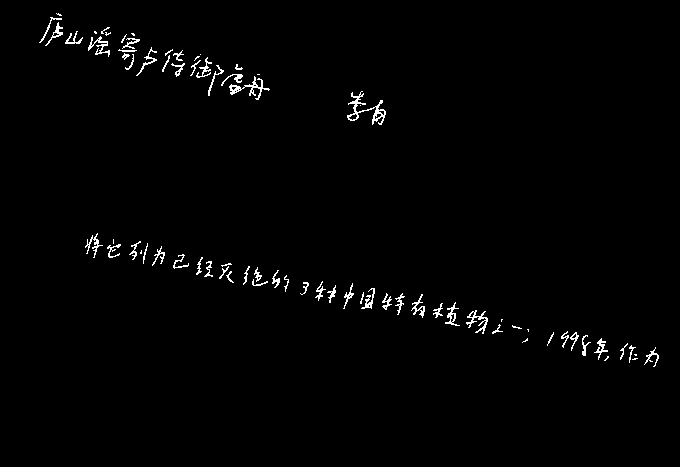 庐山谣寄卢侍御虚舟 李白
将它列为已经灭绝的3种中国特有植物之一；1998年，作为